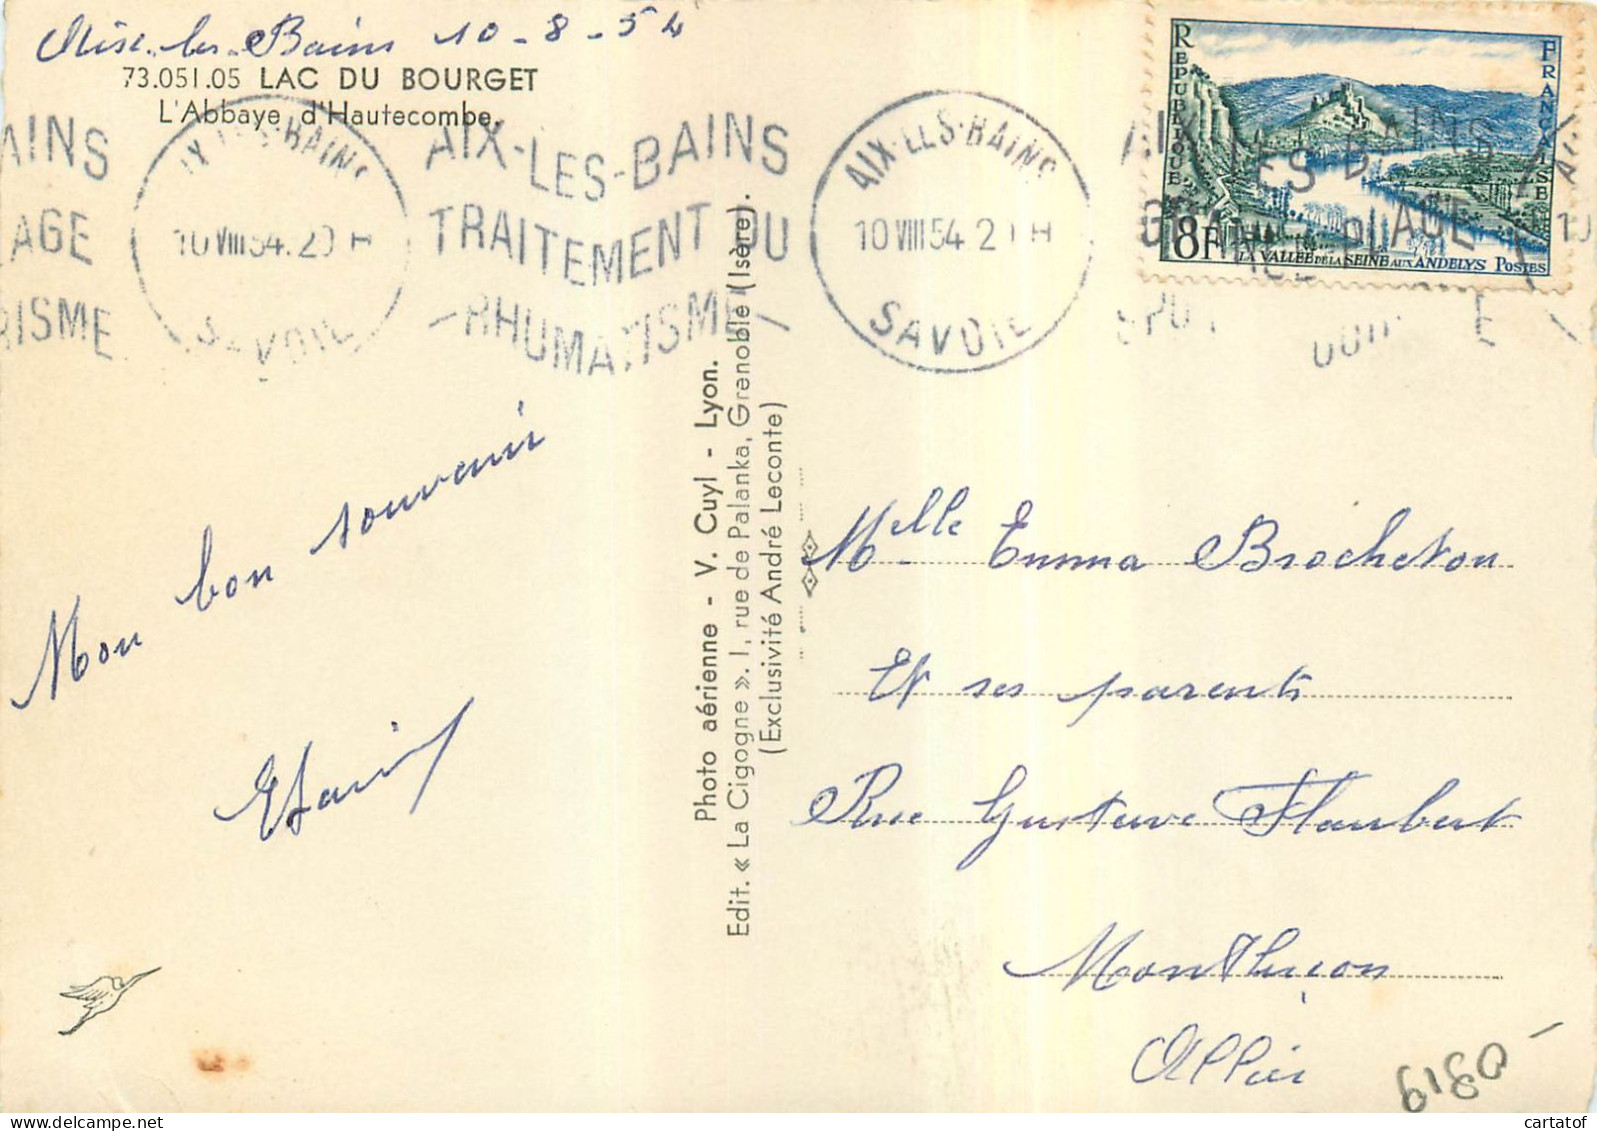 Aix-les-Bains 10-8-54
73.051.05 LAC DU BOURGET
L'Abbaye d'Hautecombe.
AINS
LAGE
RISME
AIX-LES-BAINS
10 VIII 54. 20 H
SAVOIE
AIX-LES-BAINS
TRAITEMENT DU
RHUMATISME
AIX-LES-BAINS
10 VIII 54 2 H
SAVOIE
AIX LES-BAINS
PLAGE
REPUBLIQUE
FRANÇAISE
8F
LA VALLÉE DE LA SEINE AUX ANDELYS POSTES
Mon bon souvenir
Photo aérienne - V. Cuyl - Lyon.
Edit. « La Cigogne ». 1, rue de Palanka, Grenoble (Isère).
(Exclusivité André Leconte)
Melle Emma Brocheton
Et ses parents
Rue Gustave Flaubert
Monthluçon
Allier
6180
cartatof